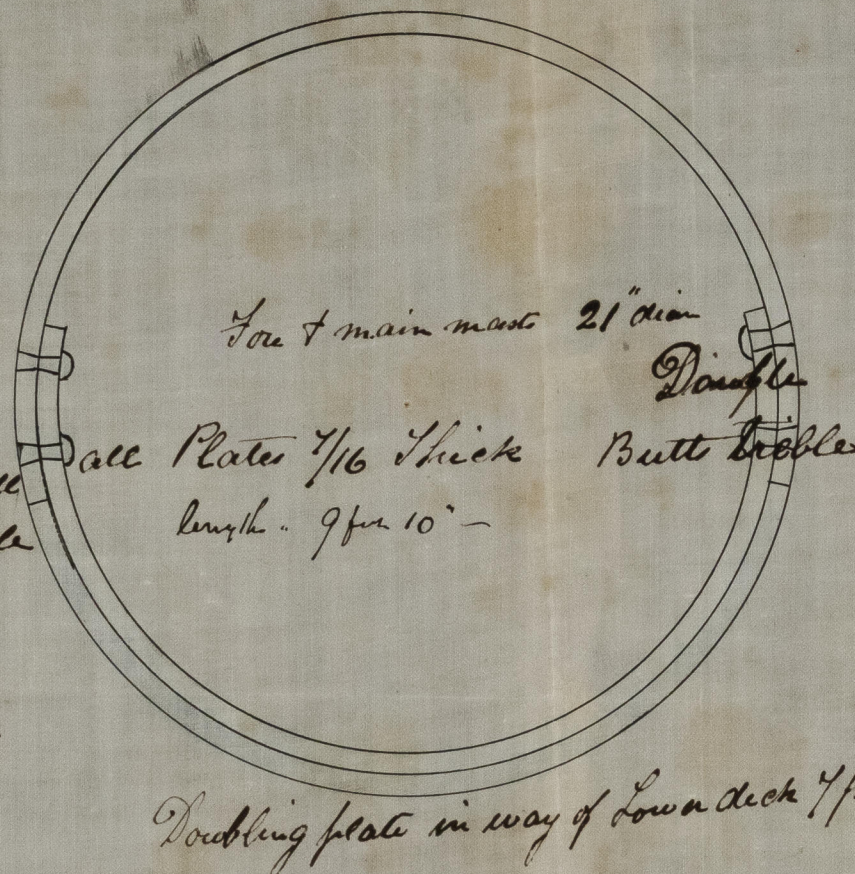 Fore & main masts 21" diam
Double
all Plates 7/16 Thick Butts treble
length . 9 feet 10" –
Doubling plate in way of Lower deck 7/